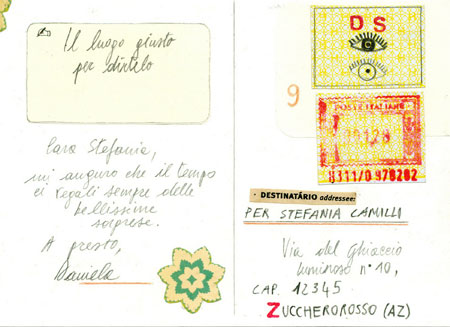 Il luogo giusto
per dirtelo
Cara Stefania,
mi auguro che il tempo
ci regali sempre delle
bellissime
sorprese.
A presto,
Daniela
D S
9
POSTE ITALIANE
DESTINATÁRIO addressee:
PER STEFANIA CAMILLI
Via del Ghiaccio
luminoso n° 10,
CAP. 12345
ZUCCHEROROSSO (AZ)